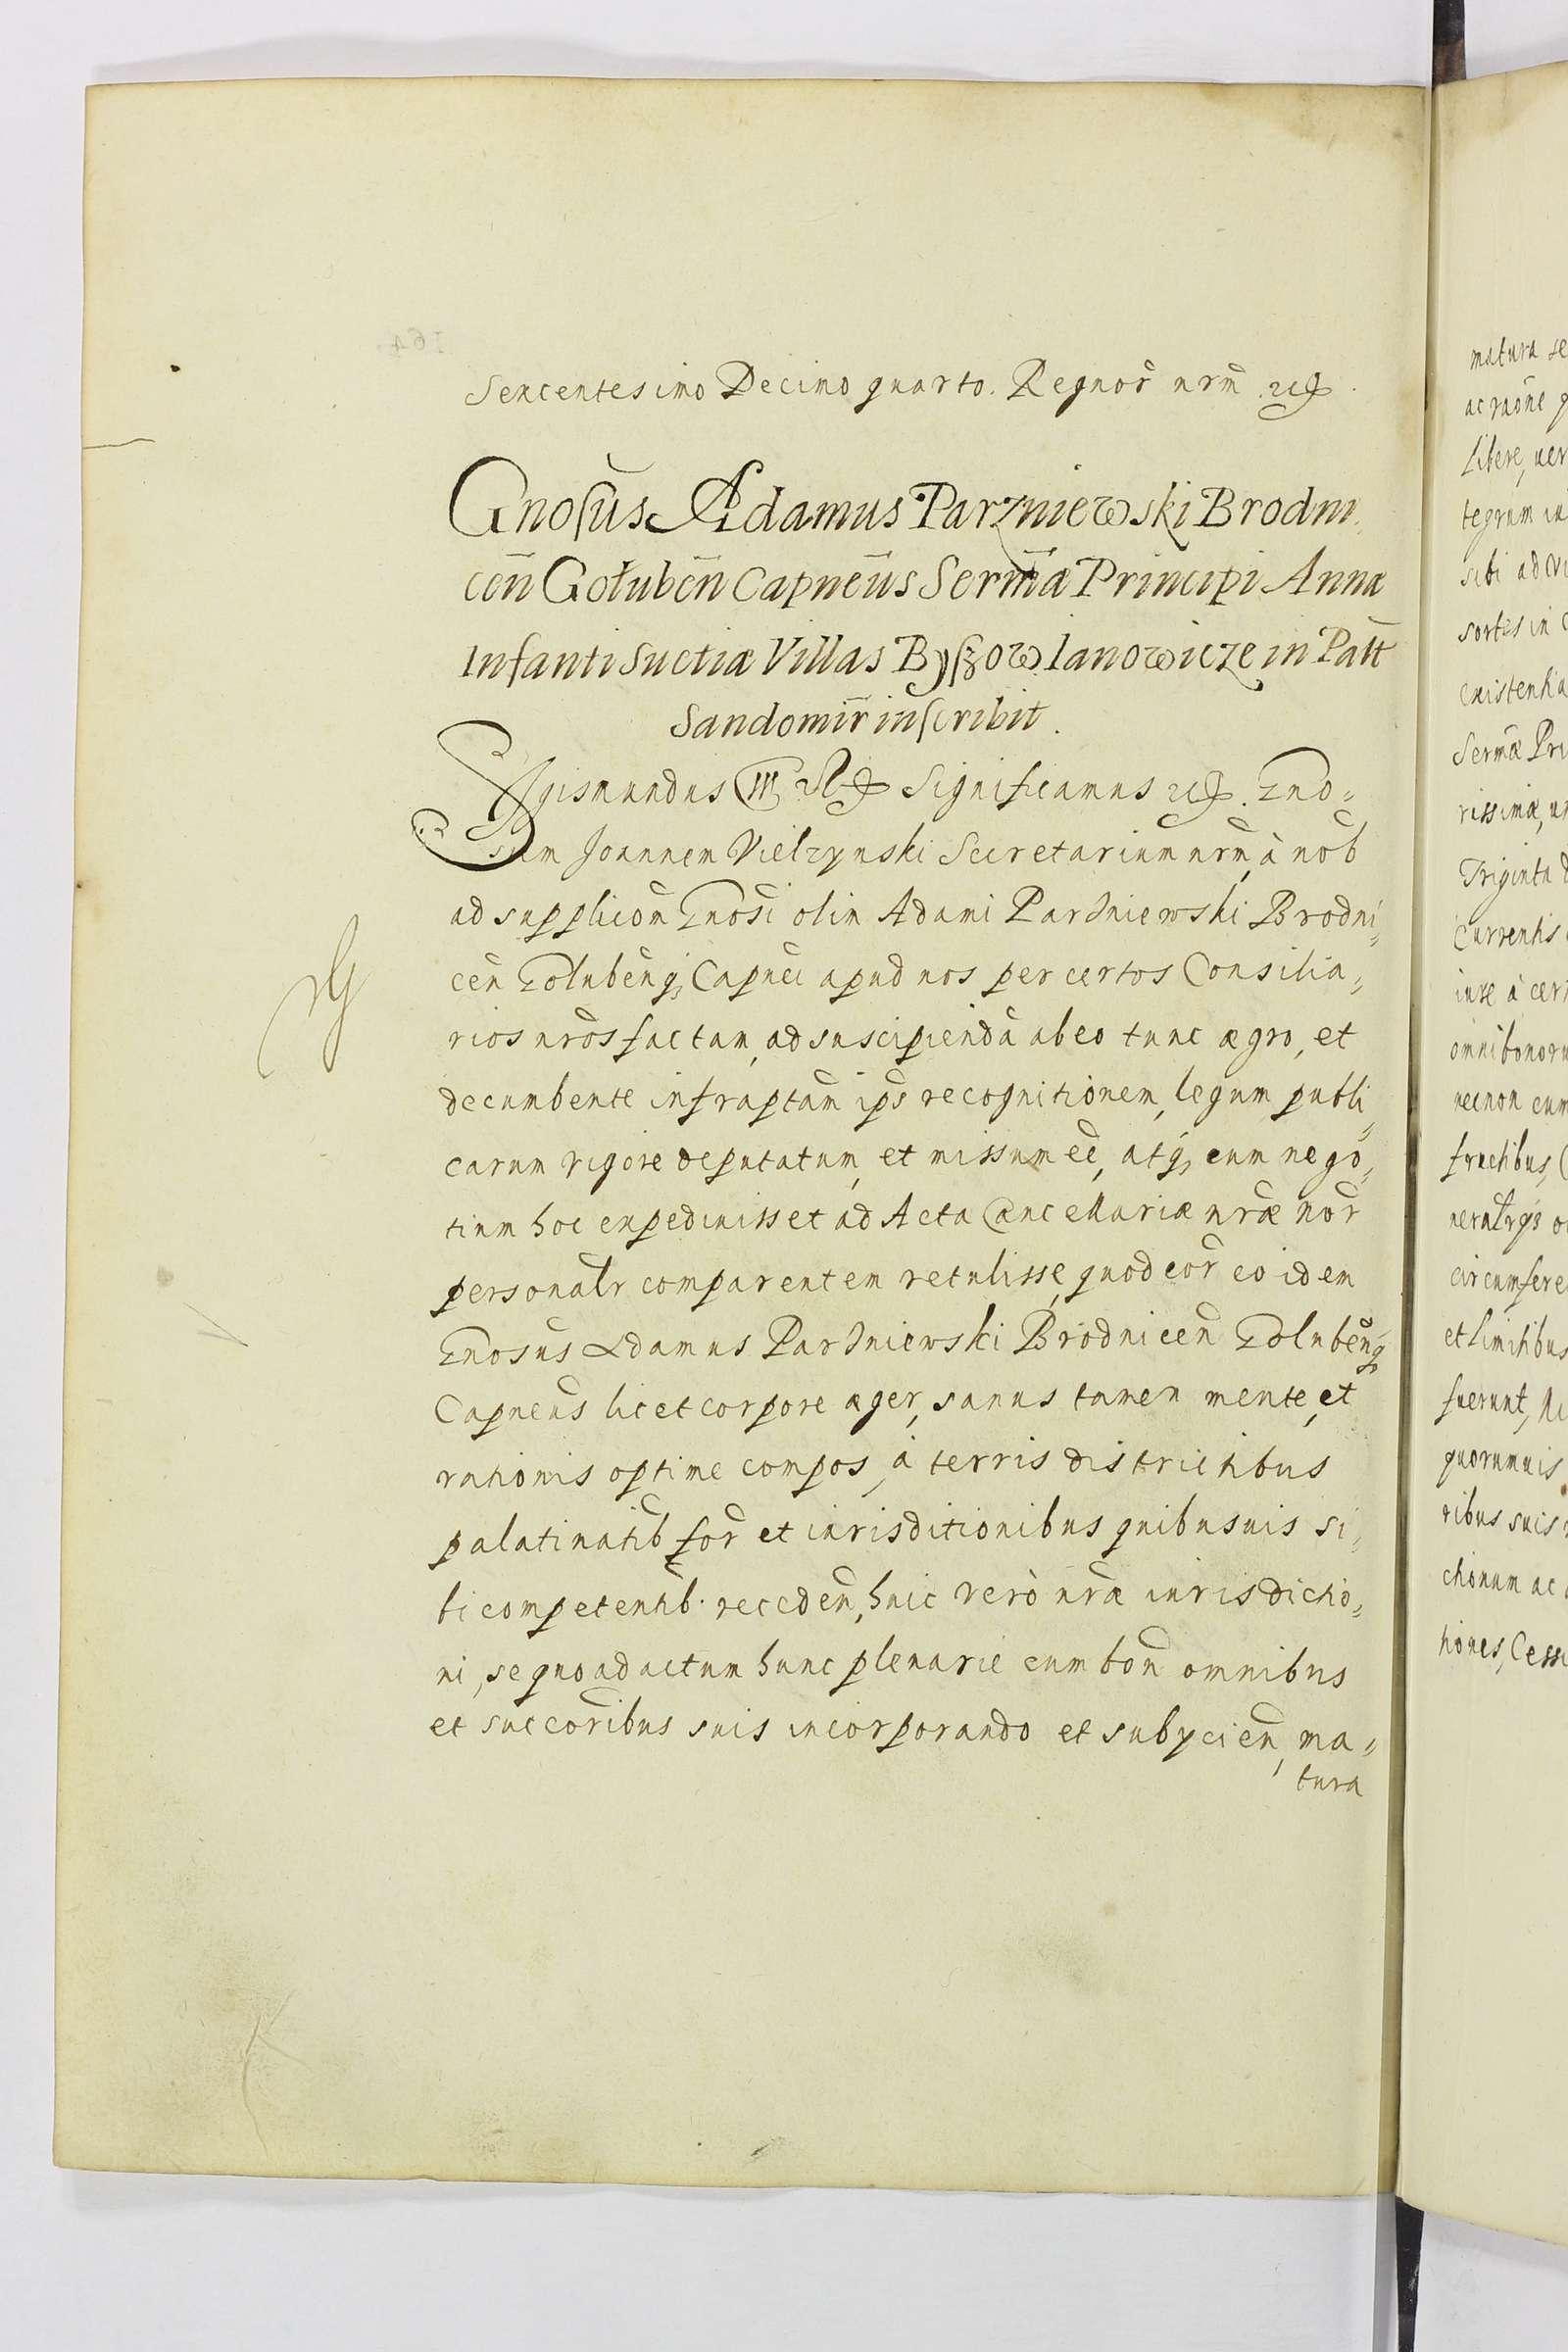 Sexcentesimo Decimo quarto. Regnor̃ nrm̃ etc.
Gnosũs Adamus Parzniewski Brodni
cen̄ Gołuben̄ Capneūs Serm̄æ Principi Annæ
Infanti Suetiæ Villas Byszow Ianowicze in Patt̄
Sandomir̄ inscribit.
Sigismundus III etc Significamus etc. Gno=
sum Joannem Vielzynski Secretarium nrm̃, à nob̃
ad supplicõn Gnosi olim Adami Parzniewski Brodni=
ceñ Golubeñq Capnei apud nos per certos Consilia=
rios nrõs factam, ad suscipiendã ab eo tunc ægro, et
decumbente infraptãm ips̃ recognitionem, legum publi=
carum rigore deputatum, et missum eẽ, atq, cum nego=
tium hoc expediuisset ad Acta Cancellariæ nræ nõr
personalr̃ comparentem retulisse, quod cor̃ eo idem
Gnosũs Adamus Parzniewski Brodniceñ Golubeñq
Capneũs licet corpore æger, sanus tamen mente, et
rationis optime compos, à terris districtibus
palatinatib̃ for̃ et iurisditionibus quibusuis si=
bi competentib. receden̄, huic verò nræ iurisdictio=
ni, se quo ad actum hunc plenarie cum boñ omnibus
et succoribus suis incorporando et subycien̄, ma=
tura
matura se
ac raõne
Libere, uer
tegrum in
sibi ad
sortes in
existentia
Sermæ Pri
rissimæ,
Triginta
Currentis
iure à cer
omni bonoru
necnon cum
fructibus,
circumfere
et limitibus
fuerunt,
quorumuis
ribus suis
ctionum ac
tiones, Cessi